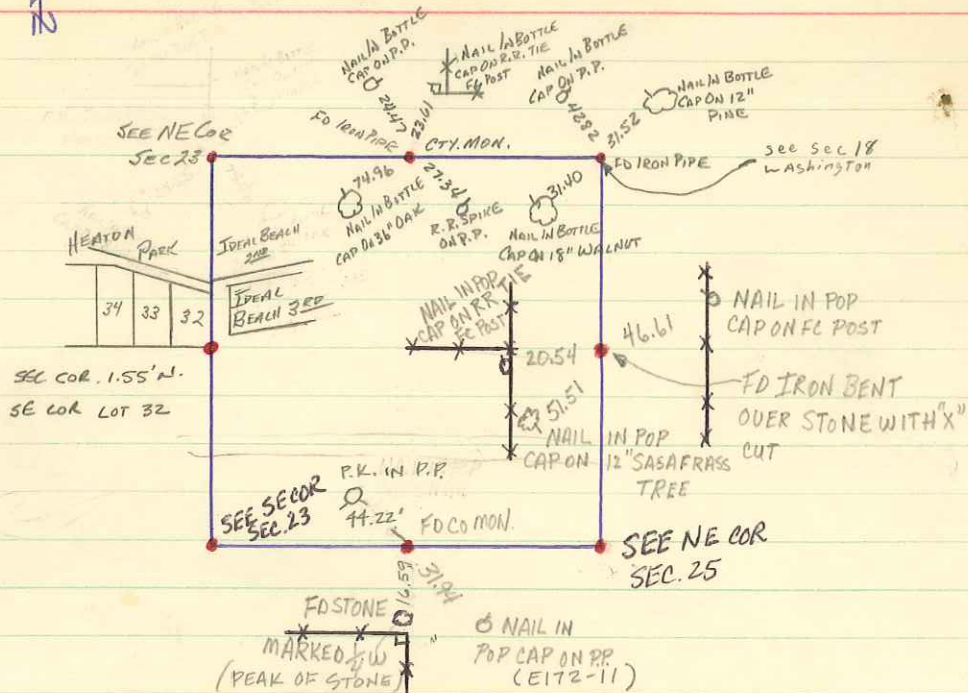 N
NAIL IN BOTTLE
CAP ON P.P.
24.47
NAIL IN BOTTLE
CAP ON R.R. TIE
FC POST
23.61
NAIL IN BOTTLE
CAP ON P.P.
42.82
NAIL IN BOTTLE
CAP ON 12"
PINE
31.52
SEE NE COR
SEC 23
FD IRON PIPE
CTY. MON.
FD IRON PIPE
see Sec 18
Washington
74.96
NAIL IN BOTTLE
CAP ON 36" OAK
27.34
R.R. SPIKE
ON P.P.
31.40
NAIL IN BOTTLE
CAP ON 18" WALNUT
HEATON
PARK
IDEAL BEACH
2ND
IDEAL
BEACH 3RD
34
33
32
NAIL IN POP
CAP ON RR TIE
FC POST
20.54
46.61
NAIL IN POP
CAP ON FC POST
SEC COR. 1.55' N.
SE COR LOT 32
51.51
NAIL IN POP
CAP ON 12" SASAFRASS
TREE
FD IRON BENT
OVER STONE WITH "X"
CUT
SEE SE COR
SEC. 23
P.K. IN P.P.
44.22'
FD CO MON.
SEE NE COR
SEC. 25
16.59
31.94
FD STONE
MARKED 1/4 W
(PEAK OF STONE)
NAIL IN
POP CAP ON P.P.
(E172-11)